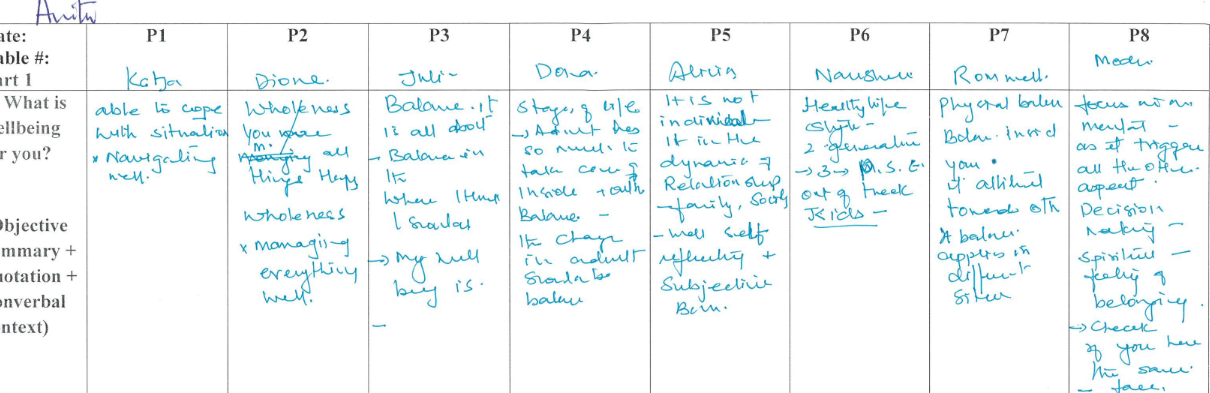 Anita
ate:
able #:
art 1
P1
P2
P3
P4
P5
P6
P7
P8
Katja
Dione.
Juli
Dana.
Rommell.
What is
ellbeing
r you?
bjective
mmary +
otation +
onverbal
ntext)
able to cope
with situation
* Navigating
well.
Wholeness
you
m.
all
things Happ
wholeness
* managing
everything
well.
Balance. it
is all about
→ Balance in
Its
where I
I
→ My well
being is.
–
Stage of life
→ Adult has
so much to
take care of
Inside + outh
Balance –
Its change
in adult
balan
It is not
individual
It in the
dynamic of
Relationship
– family, Society
– well self
+
Subjective
Healthy life
style –
2 generation
→ 3 →
out of
Kids –
Physical balan
you.
towards oth
A balan.
applies in
different
focus
mental –
as it trigger
all the other
aspect.
Decision
Making –
spiritual –
feeling of
belonging.
→ Check
if you have
the same
– face.